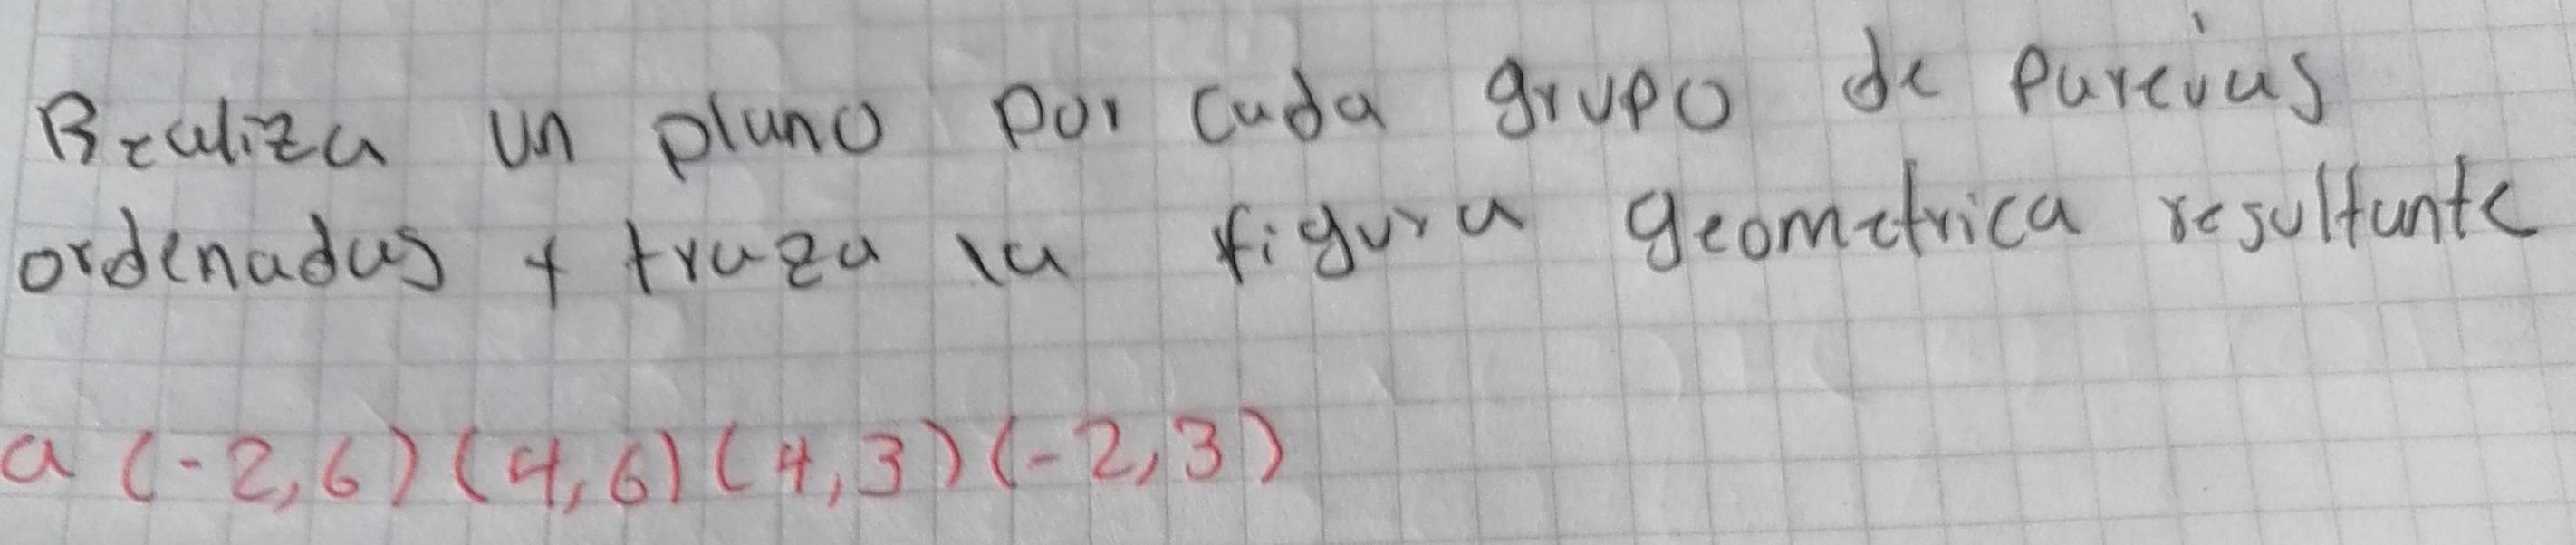 Realiza un plano por cada grupo de parejas
ordenadas y traza la figura geometrica resultante
a (-2,6) (4,6) (4,3) (-2,3)